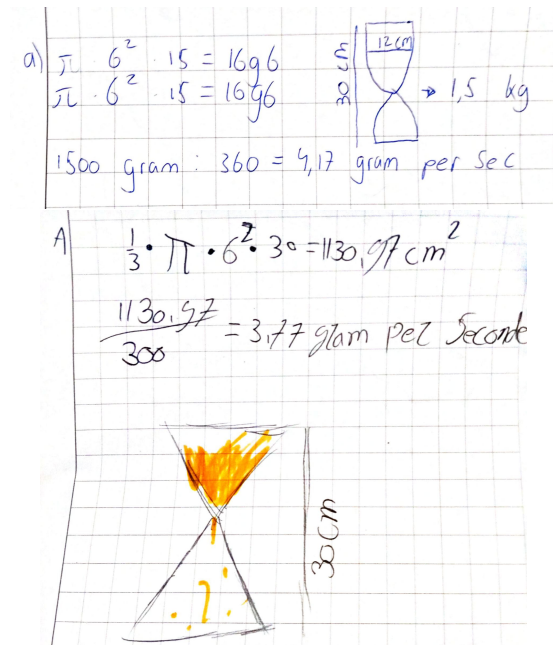 a) π · 6² · 15 = 1696
π · 6² · 15 = 1696
12 cm
30 cm
→ 1,5 kg
1500 gram : 360 = 4,17 gram per sec
A
1/3 · π · 6² · 30 = 1130,97 cm²
1130,97
300
= 3,77 gram per Seconde
30 cm
?